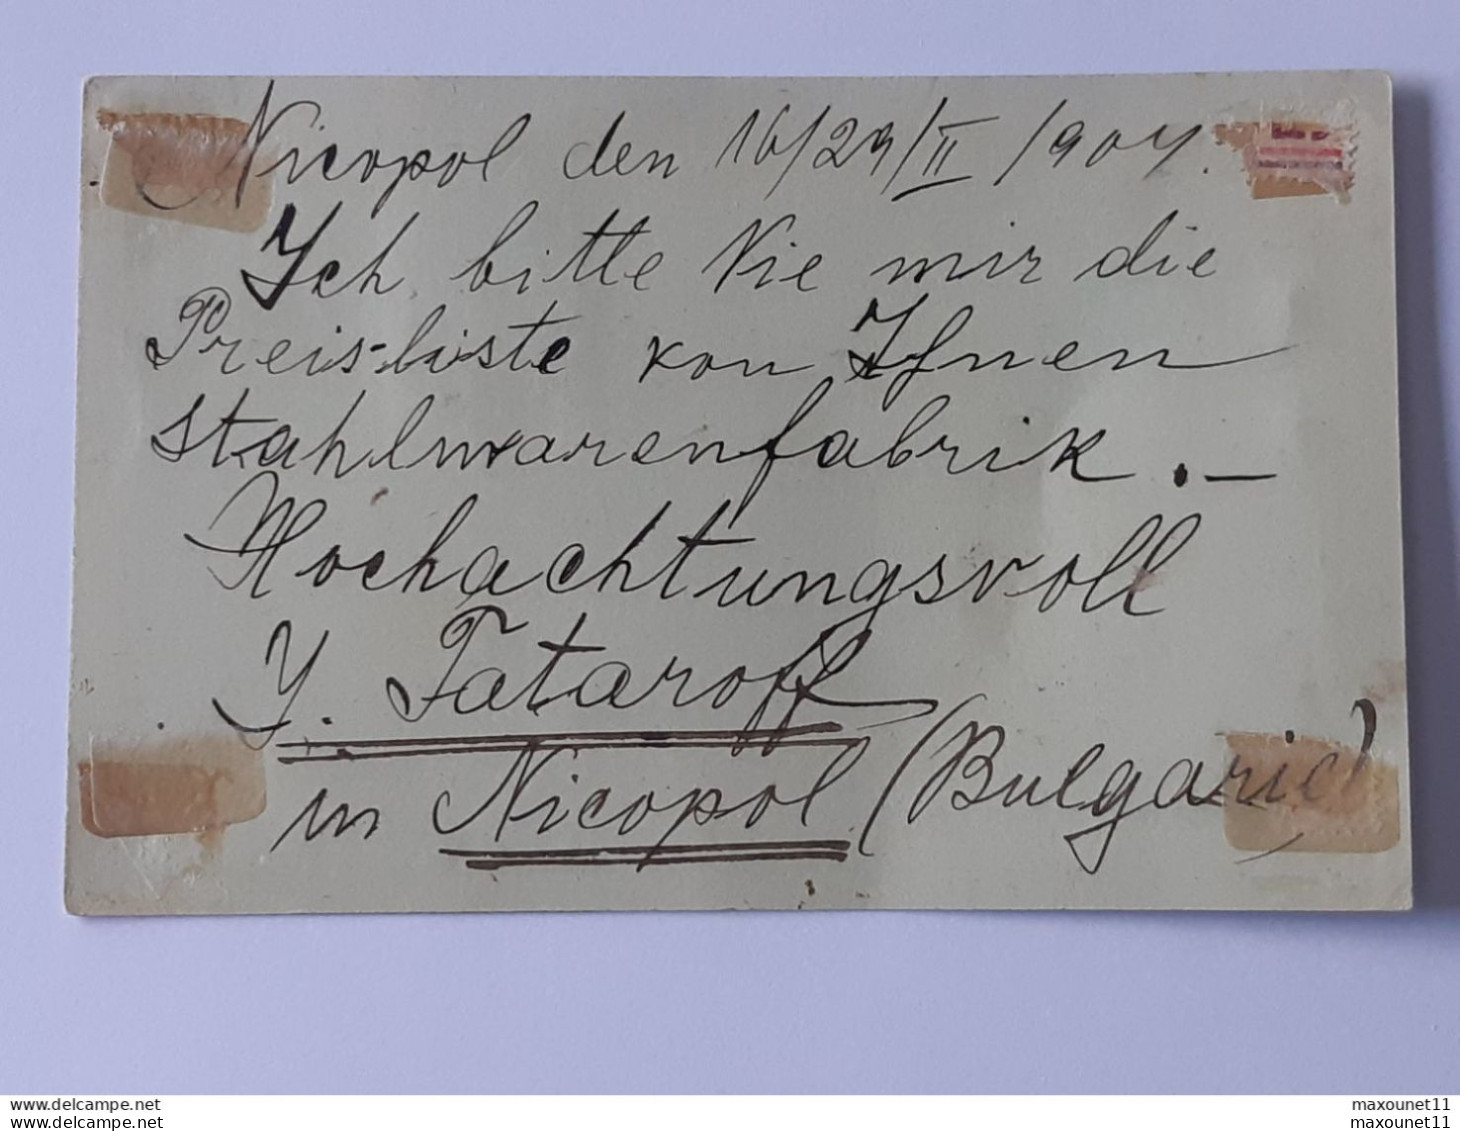 Nicopol den 16/29/II 1904.
Ich bitte Sie mir die
Preis-liste von Ihnen
stahlwarenfabrik . –
Hochachtungsvoll
Y. Tataroff
in Nicopol (Bulgarie)
maxounet11
maxounet11
maxounet11
maxounet11